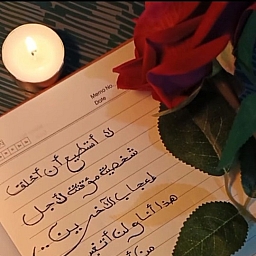 Memo No.
Date
لا أستطيع أن أخلق
شخصية مؤقتة لأجل
إعجاب الآخرين..
هذا أنا ولن أتغير
من أ